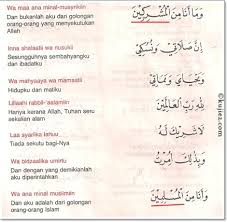 Wa maa ana minal-musyrikiin
Dan bukanlah aku dari golongan
orang-orang yang menyekutukan
Allah
وَمَا أَنَا مِنَ الْمُشْرِكِيْنَ
Inna shalaatii wa nusukii
Sesungguhnya sembahyangku
dan ibadatku
إِنَّ صَلَاتِي وَنُسُكِي
Wa mahyaaya wa mamaatii
Hidupku dan matiku
وَمَحْيَايَ وَمَمَاتِي
Lillaahi rabbil-'aalamiin
Hanya kerana Allah, Tuhan seru
sekelian alam
لِلّٰهِ رَبِّ الْعَالَمِيْنَ
Laa syariika lahuu
Tiada sekutu bagi-Nya
لَا شَرِيْكَ لَهُ
Wa bidzaalika umirtu
Dan dengan yang demikianlah
aku diperintahkan
وَبِذَلِكَ أُمِرْتُ
Wa ana minal musimiin
Dan aku adalah dari golongan
orang-orang Islam
وَأَنَا مِنَ الْمُسْلِمِيْنَ